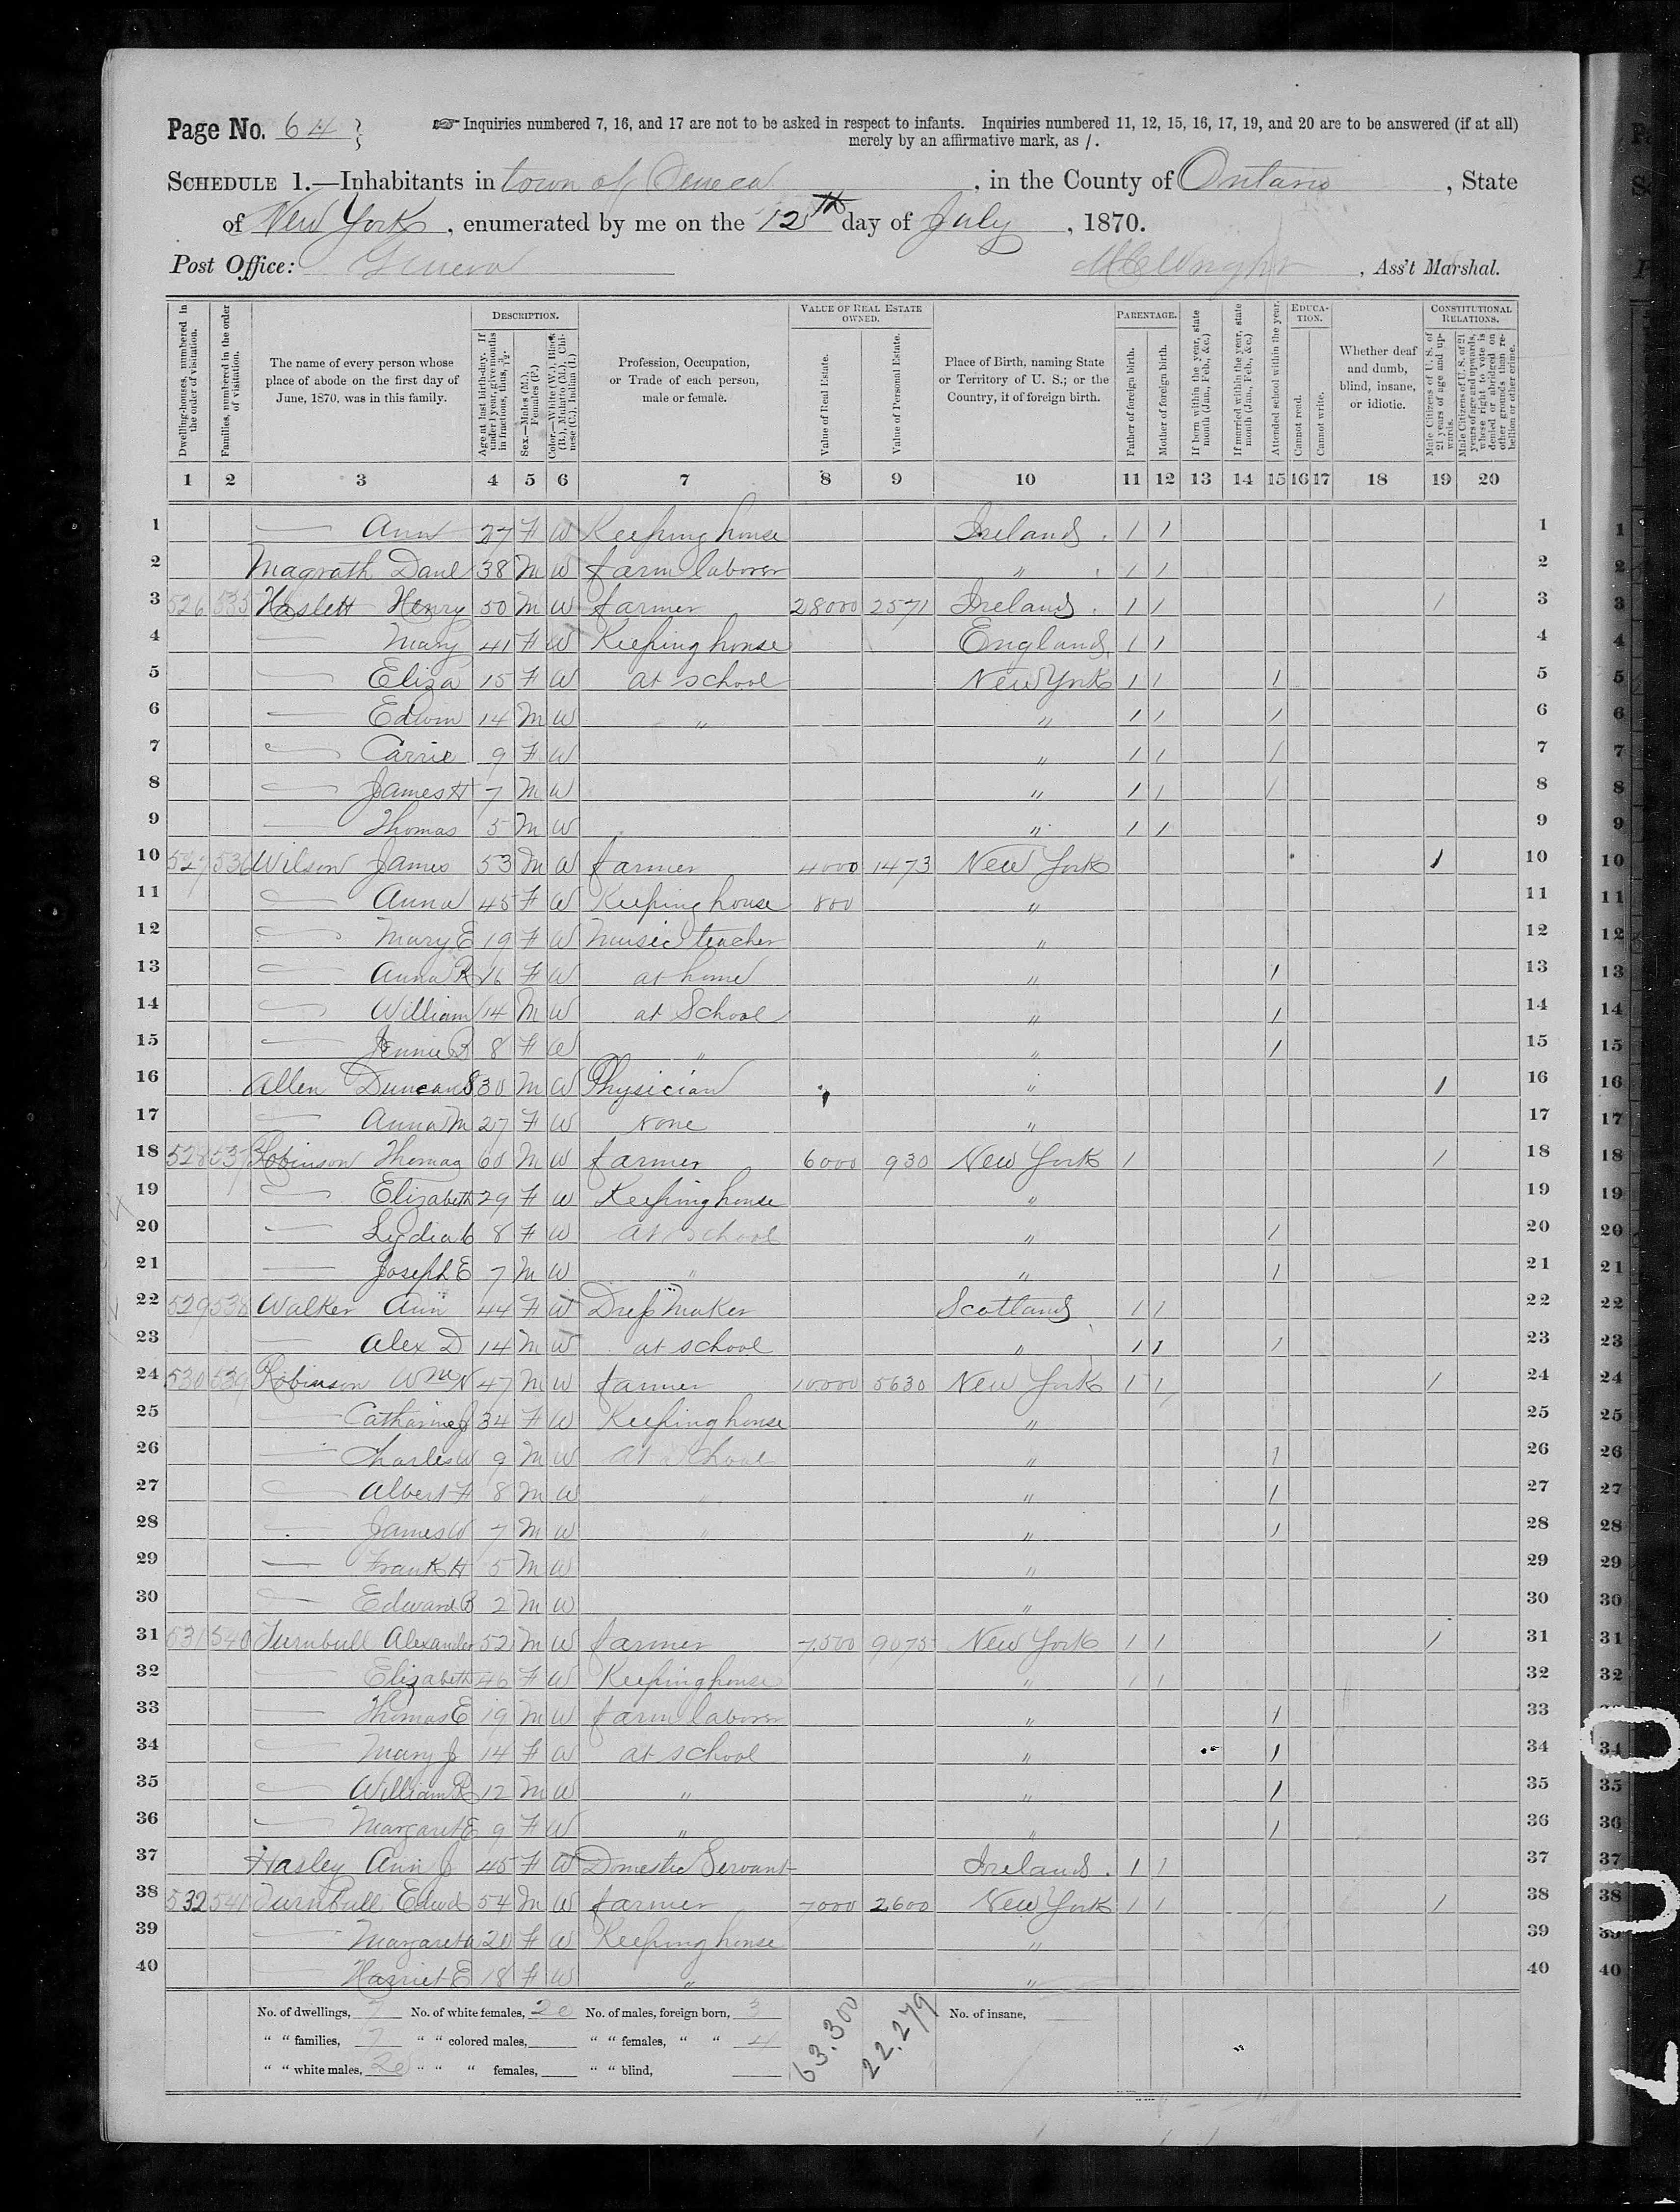 Page No. 64
☞ Inquiries numbered 7, 16, and 17 are not to be asked in respect to infants. Inquiries numbered 11, 12, 15, 16, 17, 19, and 20 are to be answered (if at all)
merely by an affirmative mark, as /.
SCHEDULE 1.—Inhabitants in town of Seneca, in the County of Ontario, State
of New York, enumerated by me on the 12th day of July, 1870.
Post Office: Geneva , Ass't Marshal.
Dwelling-houses, numbered in the order of visitation.
Families, numbered in the order of visitation.
The name of every person whose place of abode on the first day of June, 1870, was in this family.
DESCRIPTION.
Age at last birth-day. If under 1 year, give months in fractions, thus, 3/12.
Sex.—Males (M.), Females (F.)
Color.—White (W.), Black (B.), Mulatto (M.), Chinese (C.), Indian (I.)
Profession, Occupation, or Trade of each person, male or female.
VALUE OF REAL ESTATE OWNED.
Value of Real Estate.
Value of Personal Estate.
Place of Birth, naming State or Territory of U. S.; or the Country, if of foreign birth.
PARENTAGE.
Father of foreign birth.
Mother of foreign birth.
If born within the year, state month (Jan., Feb., &c.)
If married within the year, state month (Jan., Feb., &c.)
Attended school within the year.
EDUCATION.
Cannot read.
Cannot write.
Whether deaf and dumb, blind, insane, or idiotic.
CONSTITUTIONAL RELATIONS.
Male Citizens of U. S. of 21 years of age and upwards.
Male Citizens of U. S. of 21 years of age and upwards, whose right to vote is denied or abridged on other grounds than rebellion or other crime.
1 2 3 4 5 6 7 8 9 10 11 12 13 14 15 16 17 18 19 20
1 — Ann 27 F W Keeping house Ireland / / 1
2 Magrath Danl 38 M W farm laborer " / / 2
3 526 535 Haslett Henry 50 M W farmer 28000 2571 Ireland / / / 3
4 — Mary 41 F W Keeping house England / / 4
5 — Eliza 15 F W at school New York / / / 5
6 — Edwin 14 M W " " / / / 6
7 — Carrie 9 F W " / / / 7
8 — James H 7 M W " / / / 8
9 — Thomas 5 M W " / / 9
10 527 536 Wilson James 53 M W farmer 4000 1473 New York / 10
11 — Anna 45 F W Keeping house 800 " 11
12 — Mary E 19 F W Music teacher " 12
13 — Anna R 16 F W at home " / 13
14 — William 14 M W at School " / 14
15 — Jennie B 8 F W " " / 15
16 Allen Duncan S 30 M W Physician " / 16
17 — Anna M 27 F W None " 17
18 528 537 Robinson Thomas 60 M W farmer 6000 930 New York / / 18
19 — Elizabeth 29 F W Keeping house " 19
20 — Lydia C 8 F W at school " / 20
21 — Joseph E 7 M W " " / 21
22 529 538 Walker Ann 44 F W Dress Maker Scotland / / 22
23 — Alex D 14 M W at school " / / / 23
24 530 539 Robinson Wm N 47 M W farmer 10000 5630 New York / / / 24
25 — Catharine J 34 F W Keeping house " 25
26 — Charles W 9 M W at school " / 26
27 — Albert F 8 M W " " / 27
28 — James W 7 M W " " / 28
29 — Frank H 5 M W " 29
30 — Edward B 2 M W " 30
31 531 540 Turnbull Alexander 52 M W farmer 7,500 9075 New York / / / 31
32 — Elizabeth 46 F W Keeping house " / / 32
33 — Thomas E 19 M W farm laborer " / 33
34 — Mary J 14 F W at school " / 34
35 — William R 12 M W " " / 35
36 — Margaret E 9 F W " " / 36
37 Hasley Ann J 45 F W Domestic Servant Ireland / / 37
38 532 541 Turnbull Edwd 54 M W farmer 7000 2600 New York / / / 38
39 — Margaret A 20 F W Keeping house " 39
40 — Harriet E 18 F W " " 40
No. of dwellings, 7 No. of white females, 20 No. of males, foreign born, 3 63.300 22.279 No. of insane,
" " families, 7 " " colored males, " " females, " " 4
" " white males, 20 " " " females, " " blind,